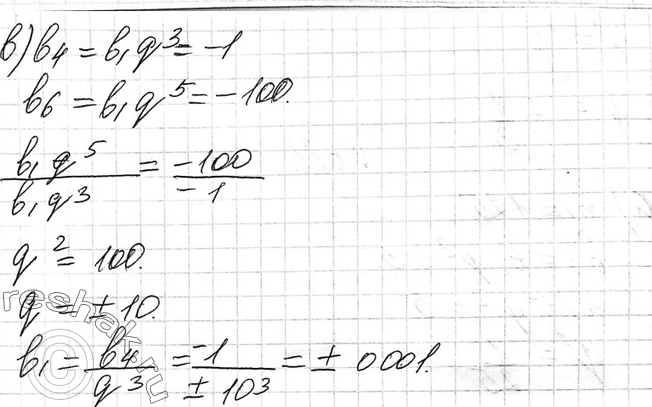 в) b₄ = b₁q³ = -1
b₆ = b₁q⁵ = -100.
b₁q⁵ / b₁q³ = -100 / -1
q² = 100.
q = ± 10.
b₁ = b₄ / q³ = -1 / ± 10³ = ± 0001.
reshak.ru